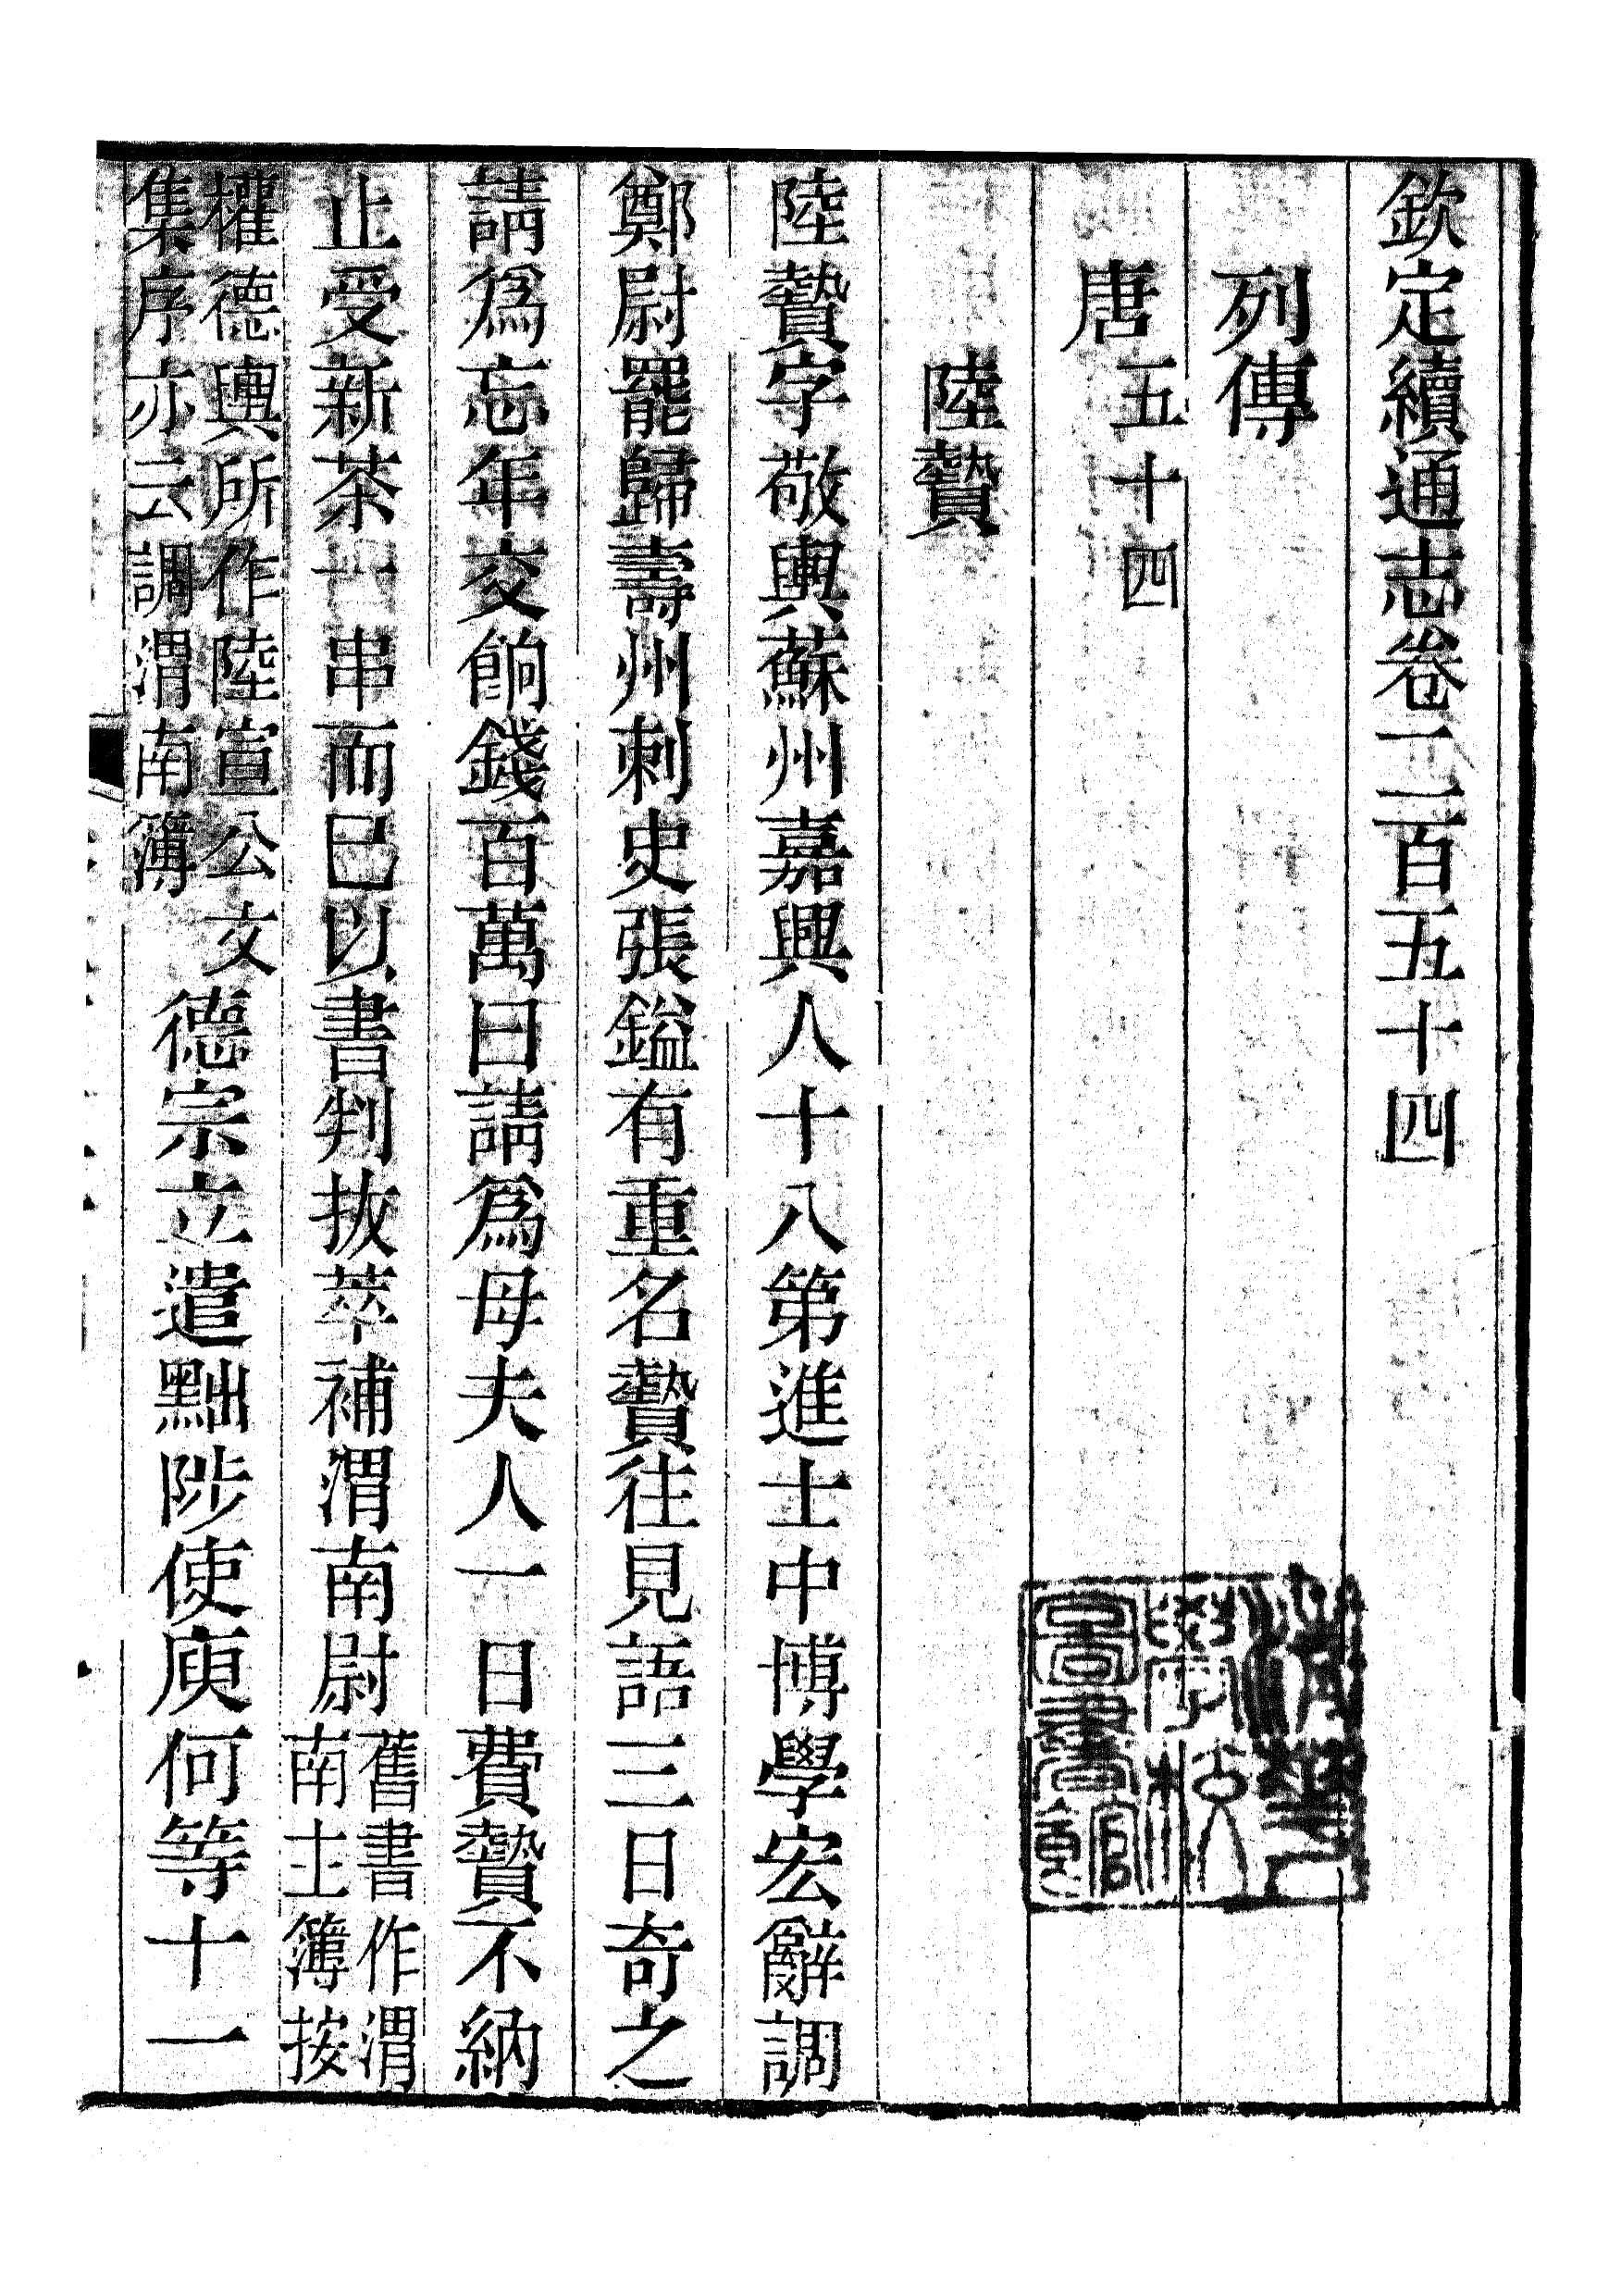 欽定續通志卷二百五十四
列傳
唐五十四
陸贄
陸贄字敬輿蘇州嘉興人十八第進士中博學宏辭調
鄭尉罷歸壽州刺史張鎰有重名贄往見語三日奇之
請為忘年交餉錢百萬曰請為母夫人一日費贄不納
止受新茶一串而已以書判拔萃補渭南尉舊書作渭
南主簿按
權德輿所作陸宣公文
集序亦云調渭南簿德宗立遣黜陟使庾何等十一
清華學校
圖書館